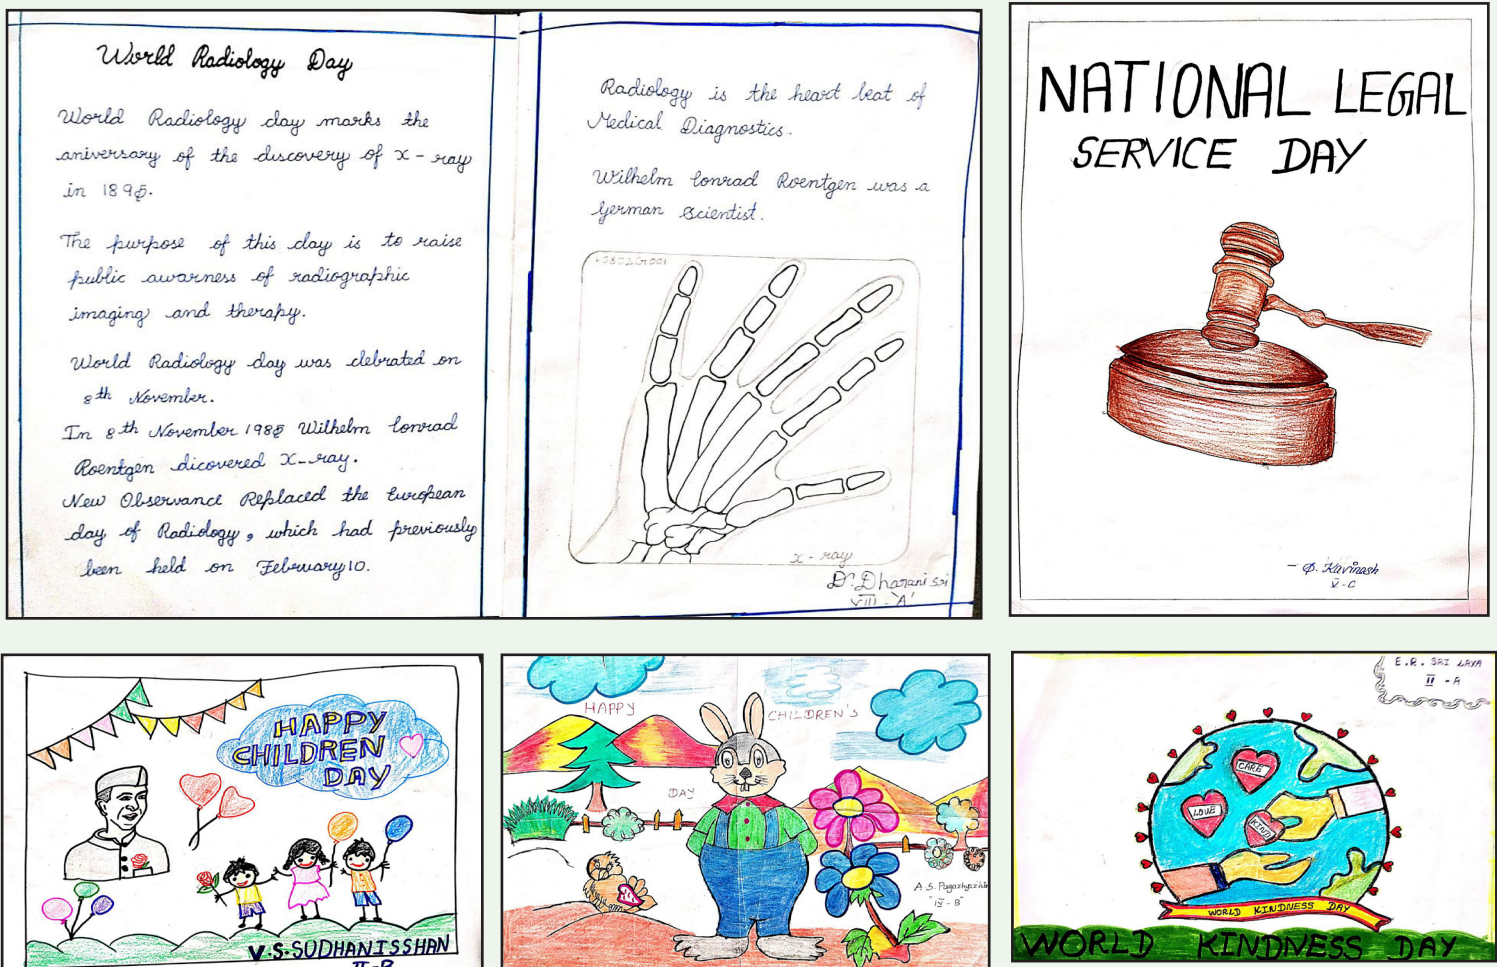 World Radiology Day
World Radiology day marks the
aniversary of the discovery of x-ray
in 1895.
The purpose of this day is to raise
public awarness of radiographic
imaging and therapy.
World Radiology day was clebrated on
8th November.
In 8th November 1985 Wilhelm Conrad
Roentgen dicovered X-ray.
New Observance Replaced the European
day of Radiology, which had previously
been held on February 10.
Radiology is the heart beat of
Medical Diagnostics.
Wilhelm Conrad Roentgen was a
German Scientist.
x-ray
D. Dharani sri
VIII - 'A'
NATIONAL LEGAL
SERVICE DAY
Kavinash
V-C
HAPPY
CHILDREN
DAY
V.S.SUDHANISSHAN
II-B
HAPPY CHILDREN'S
DAY
A.S.
"IV-B"
E.R. SRI LAYA
II - A
CARE
LOVE
KIND
WORLD KINDNESS DAY
WORLD KINDNESS DAY